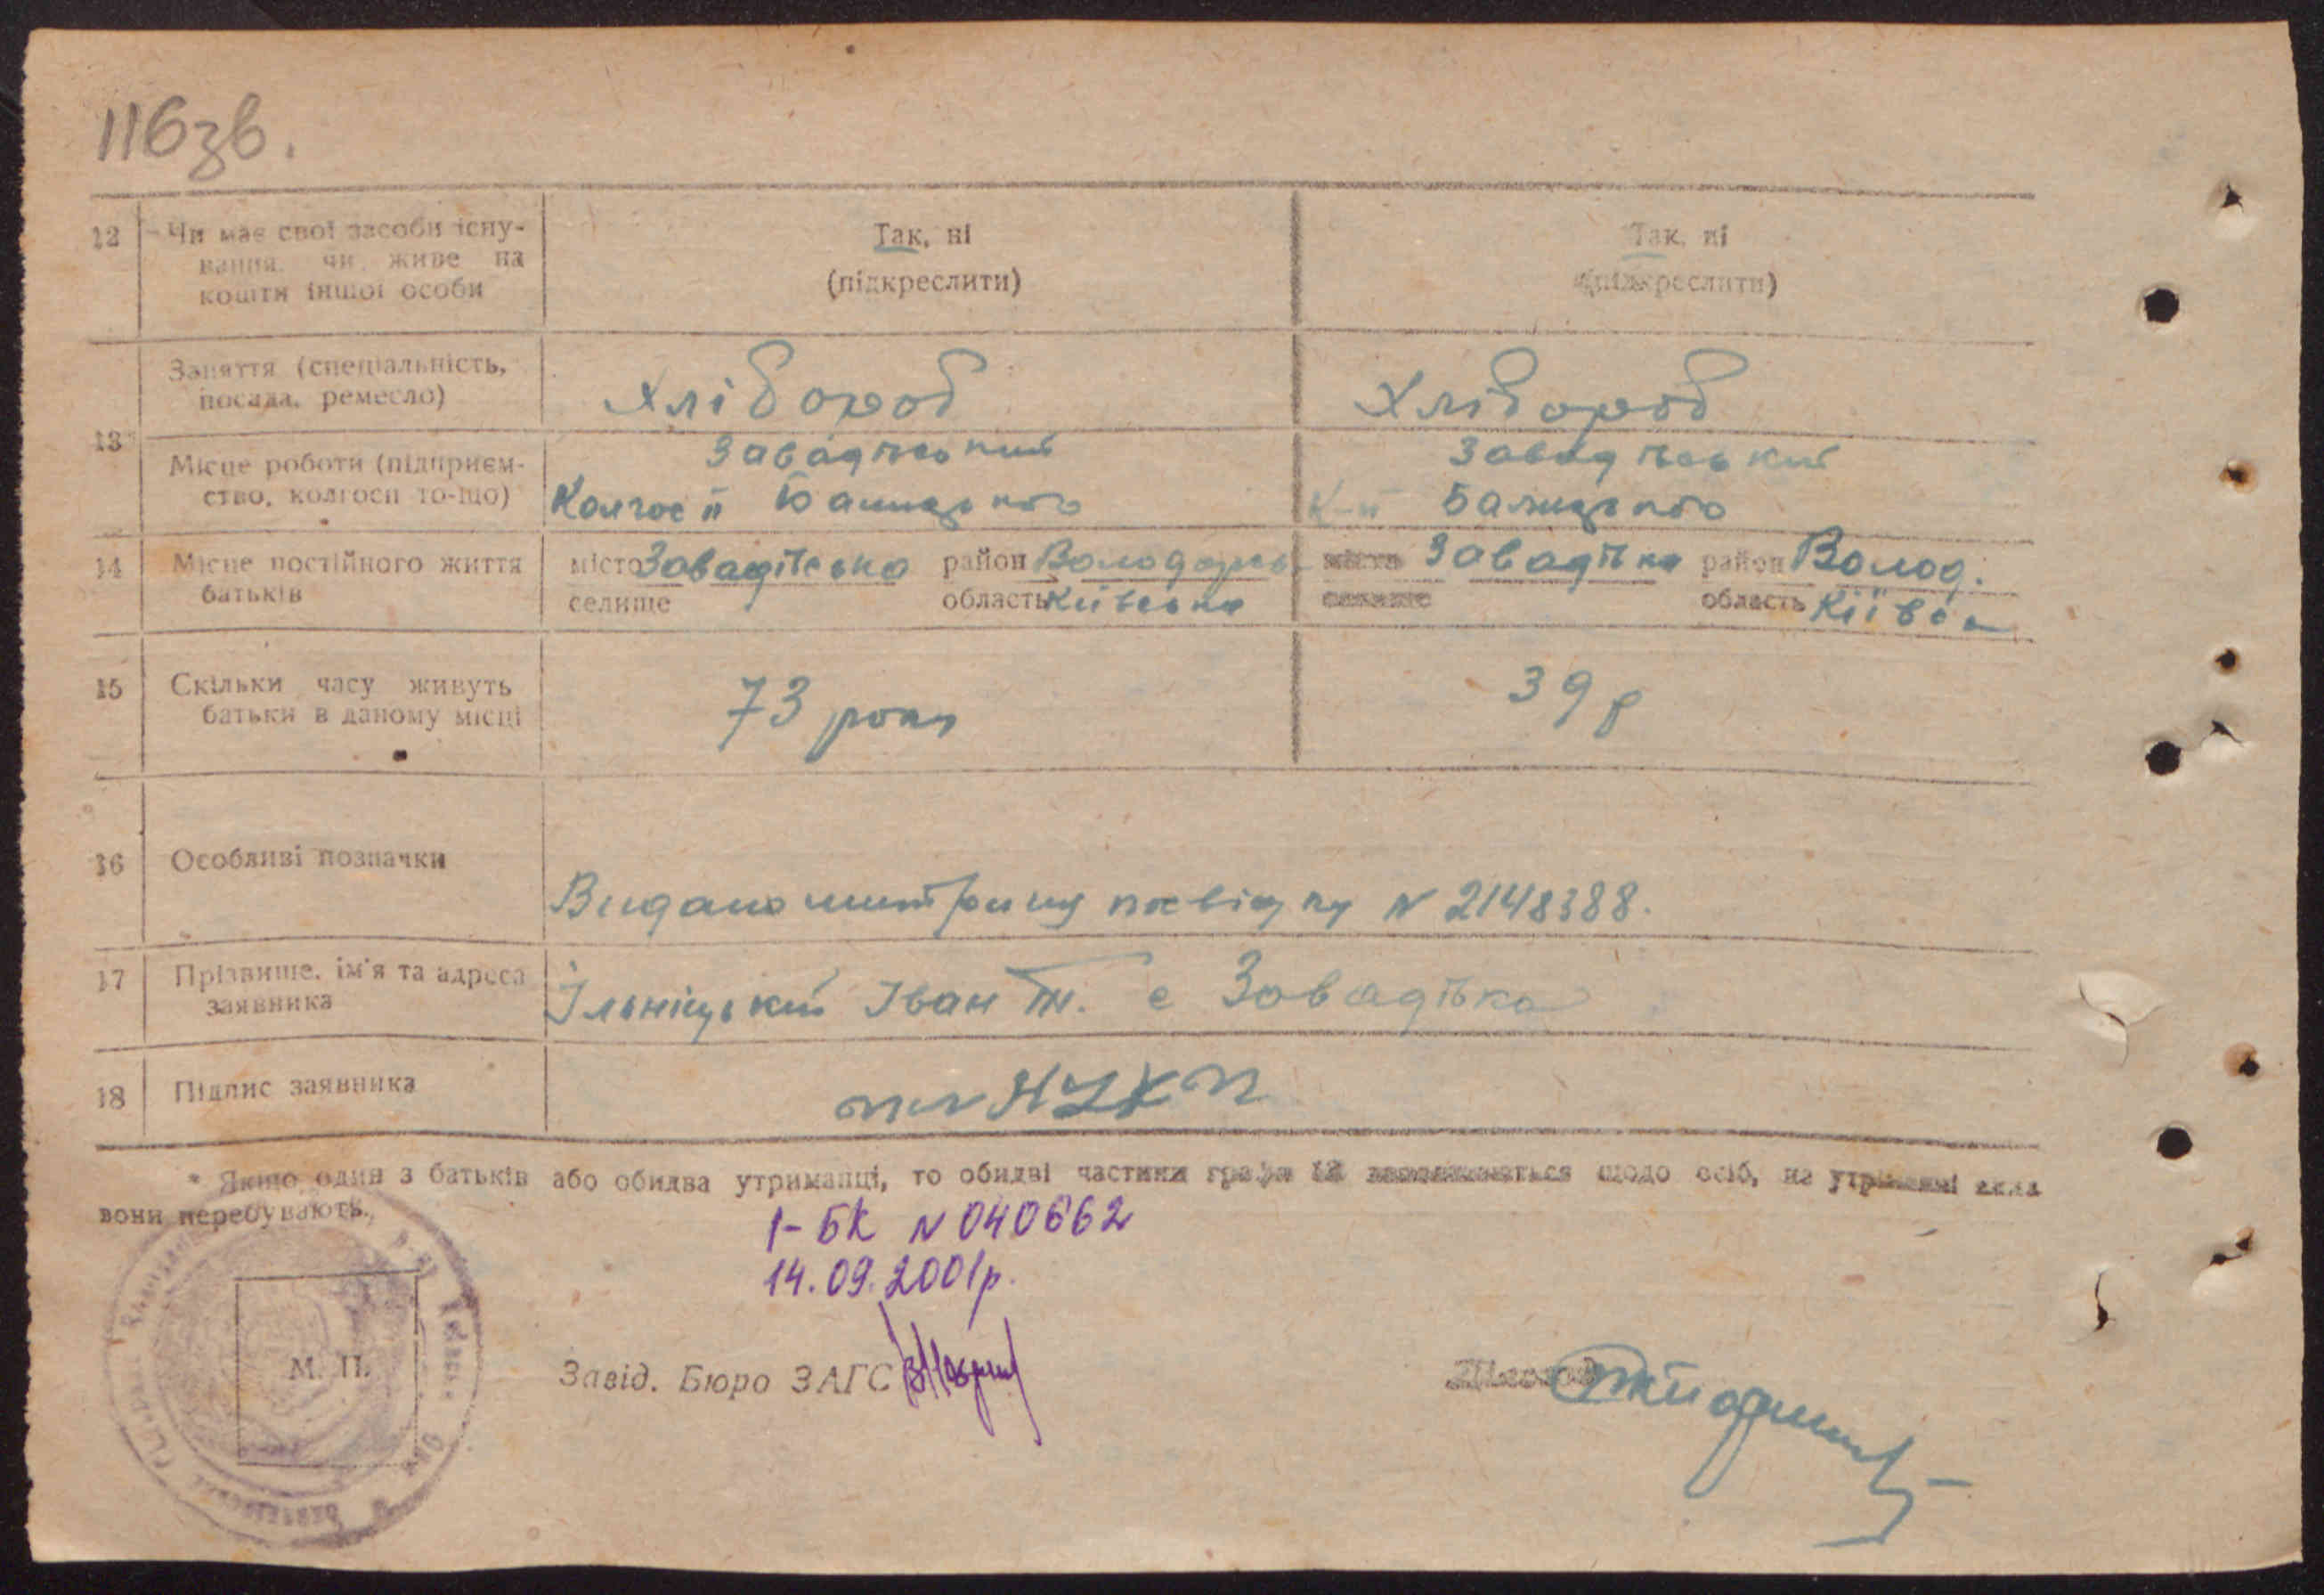 116зв.
12 Чи має свої засоби існу-
вання, чи живе на
кошти іншої особи
Так, ні
(підкреслити)
Так, ні
(підкреслити)
13
Заняття (спеціальність,
посада, ремесло)
Хлібороб
Хлібороб
Місце роботи (підприєм-
ство, колгосп то-що)
Завадівський
Колгосп Балицького
Завадівський
К-п Балицького
14 Місце постійного життя
батьків
місто Завадівська район Володарсь
селище область Київська
місто Завадівка район Волод.
селище область Київсь
15 Скільки часу живуть
батьки в даному місці
73 роки
39 р
16 Особливі позначки
Видано метричну посвідку № 2148388.
17 Прізвище, ім'я та адреса
заявника
Ільніцький Іван Т. с Завадівка
18 Підпис заявника
* Якщо один з батьків або обидва утриманці, то обидві частини графи 12 заповнюються щодо осіб, на утриманні яких
вони перебувають.
І-БК № 040662
14.09.2001р.
М. П.
Завід. Бюро ЗАГС